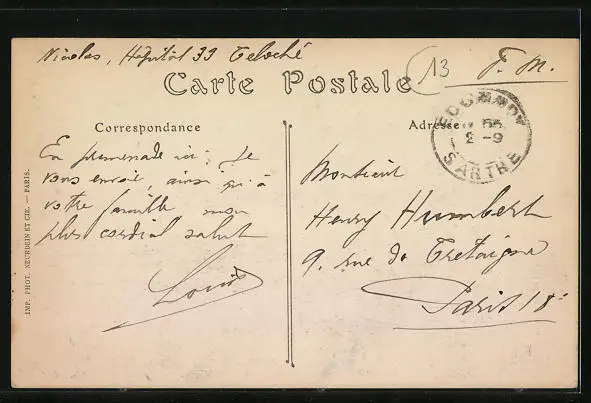 Nicolas, Hôpital 33 Teloché
13
F. M.
Carte Postale
Correspondance
Adresse
ECOMMOY
2 - 9
SARTHE
En promenade ici, Je
vous envoie ainsi qu'à
votre famille mon
plus cordial salut
Louis
Monsieur
Henry Humbert
9. rue de Tretaigne
Paris 18e
IMP. PHOT. NEURDEIN ET CIE. — PARIS.